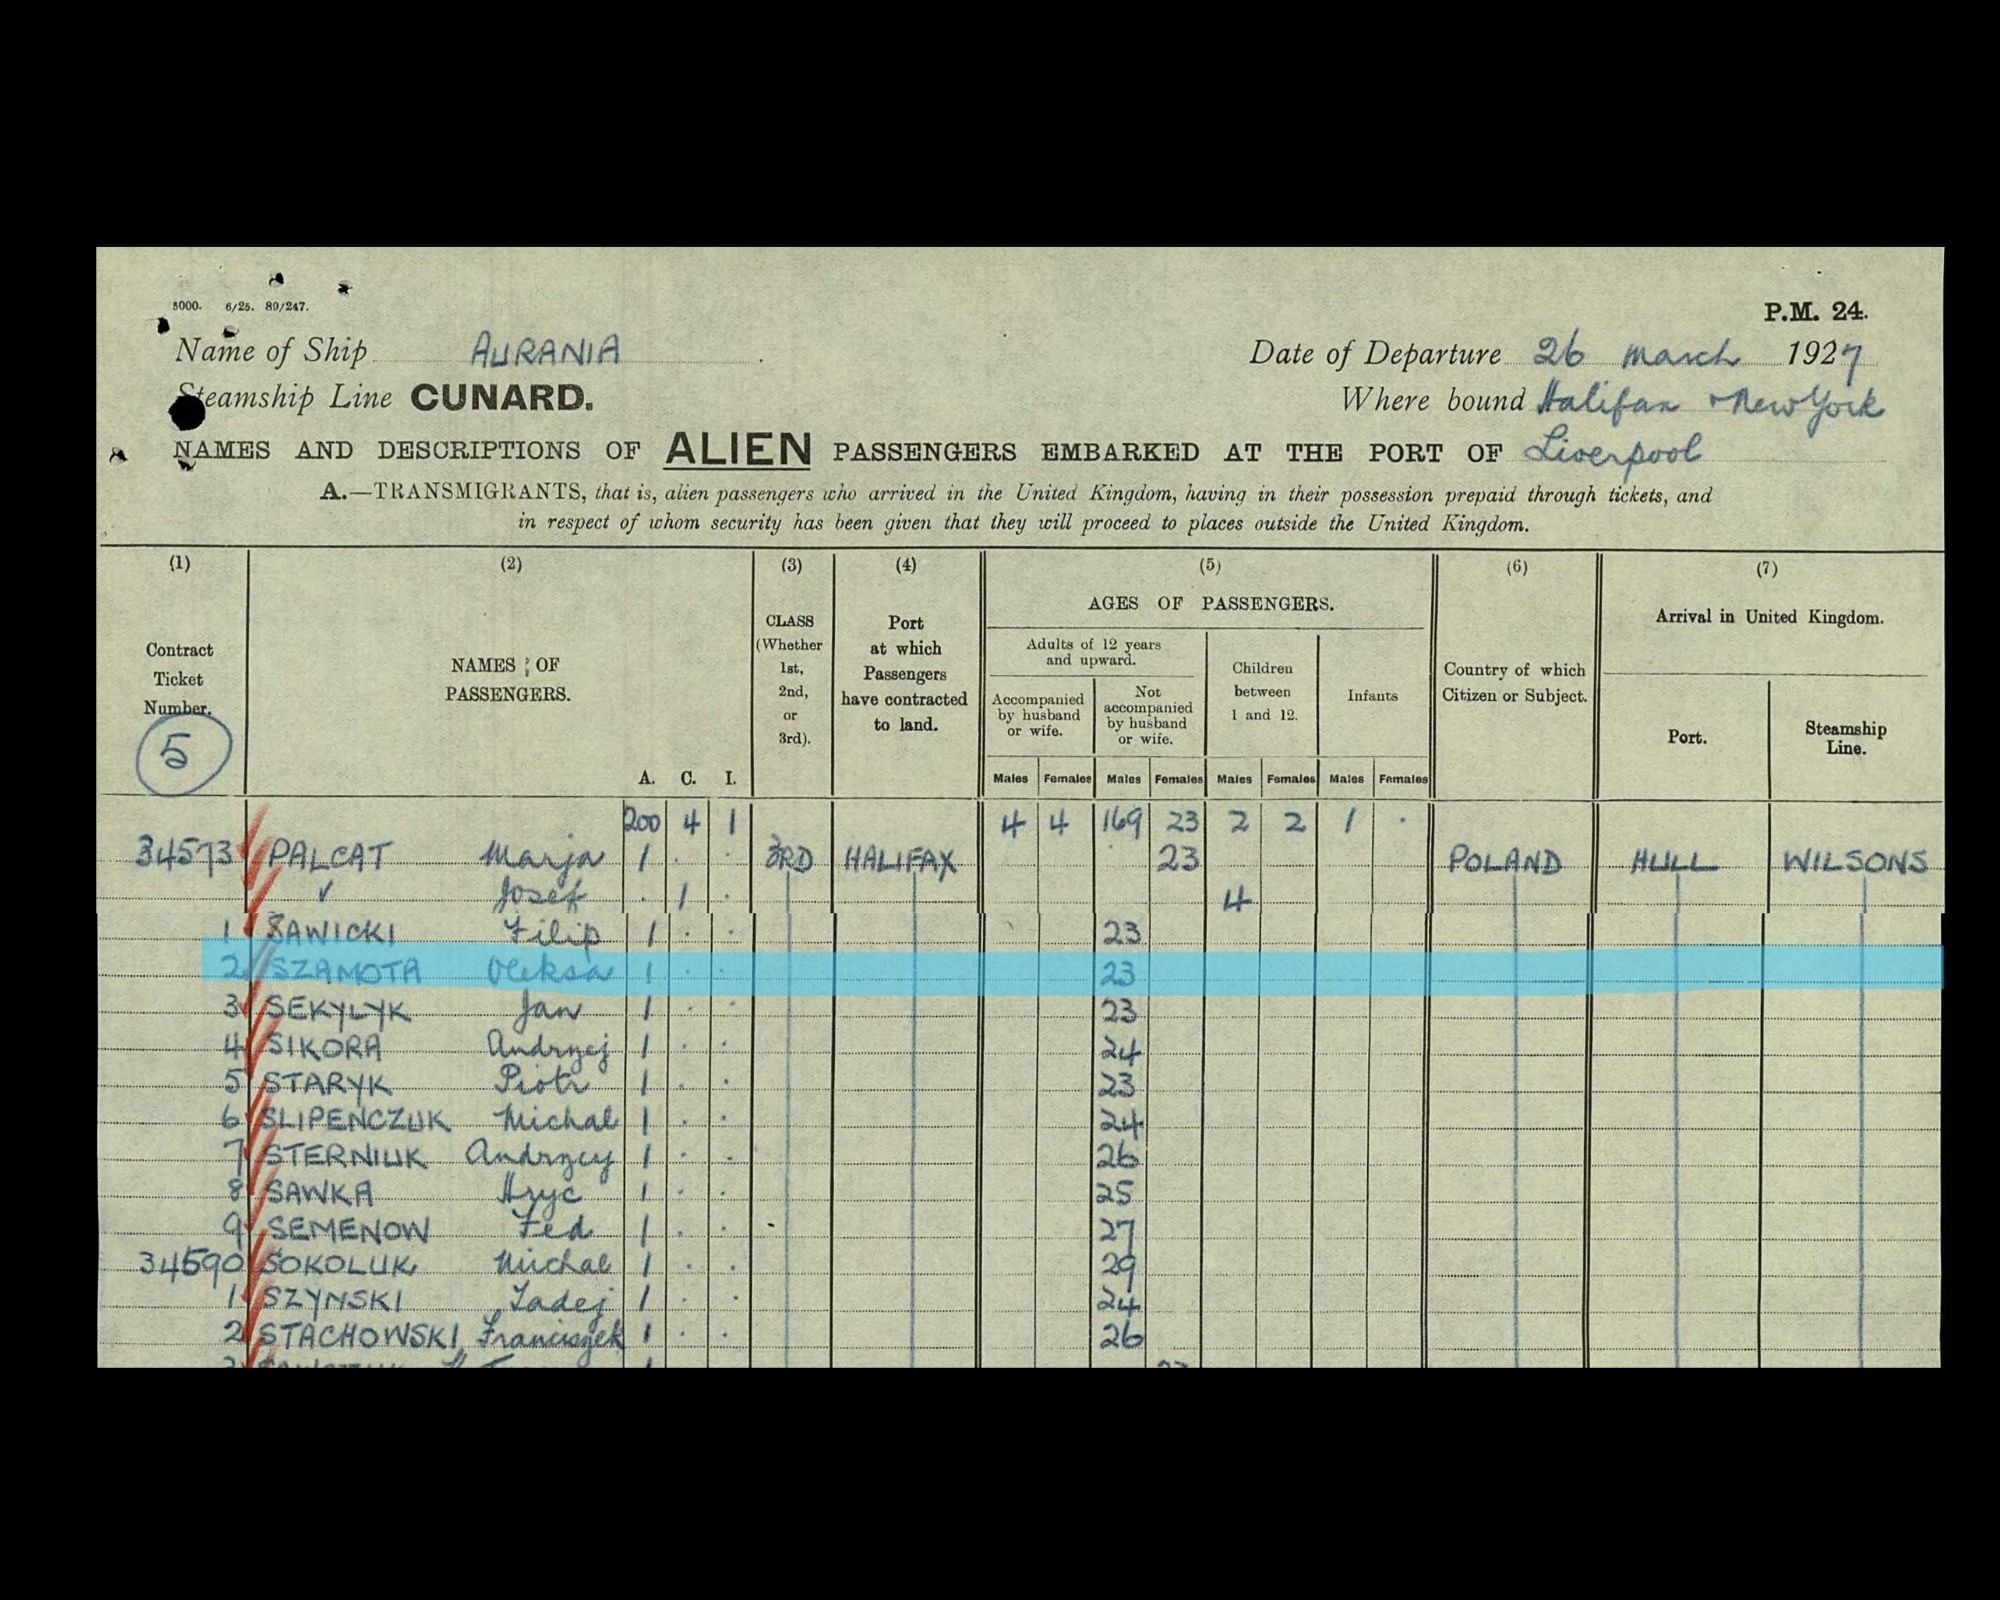 5000. 6/25. 89/247.
P.M. 24.
Name of Ship AURANIA
Date of Departure 26 March 1927
Steamship Line CUNARD.
Where bound Halifax + New York
NAMES AND DESCRIPTIONS OF ALIEN PASSENGERS EMBARKED AT THE PORT OF Liverpool
A.—TRANSMIGRANTS, that is, alien passengers who arrived in the United Kingdom, having in their possession prepaid through tickets, and
in respect of whom security has been given that they will proceed to places outside the United Kingdom.
(1) (2) (3) (4) (5) (6) (7)
Contract
Ticket
Number.
5
NAMES OF
PASSENGERS.
A. C. I.
CLASS
(Whether
1st,
2nd,
or
3rd).
Port
at which
Passengers
have contracted
to land.
AGES OF PASSENGERS.
Adults of 12 years
and upward.
Accompanied
by husband
or wife.
Not
accompanied
by husband
or wife.
Children
between
1 and 12.
Infants
Males Females Males Females Males Females Males Females
Country of which
Citizen or Subject.
Arrival in United Kingdom.
Port.
Steamship
Line.
200 4 1 4 4 169 23 2 2 1 .
34573 PALCAT Marja 1 . . 3RD HALIFAX 23 POLAND HULL WILSONS
✓ Josef . 1 . 4
1 SAWICKI Filip 1 . . 23
2 SZAMOTA Oleksa 1 . . 23
3 SEKYLYK Jan 1 . . 23
4 SIKORA Andrzej 1 . . 24
5 STARYK Piotr 1 . . 23
6 SLIPENCZUK Michal 1 . . 24
7 STERNIUK Andrzey 1 . . 26
8 SAWKA Hryc 1 . . 25
9 SEMENOW Fed 1 . . 27
34590 SOKOLUK Michal 1 . . 29
1 SZYNSKI Tadej 1 . . 24
2 STACHOWSKI Franciszek 1 . . 26